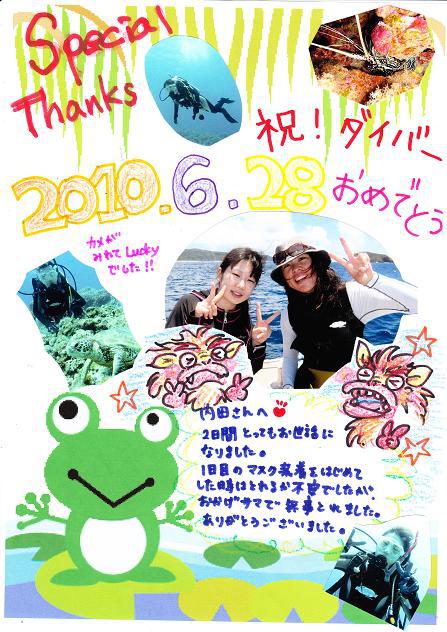 Special
Thanks
祝！ダイバー
2010.6.28
おめでとう
カメが
みれてLucky
でした!!
内田さんへ
2日間とってもお世話に
なりました。
1日目のマスク装着をはじめて
した時はとれるか不安でしたが、
おかげサマで無事とれました。
ありがとうございました。